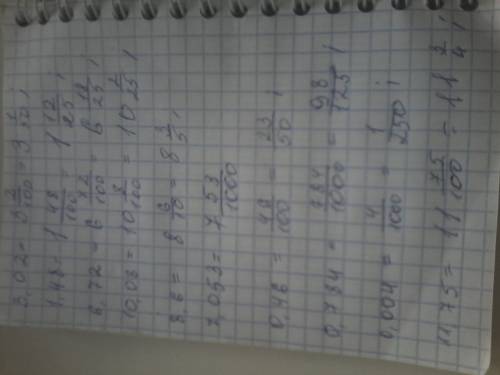 3,02 = 3 2/100 = 3 1/50;
1,48 = 1 48/100 = 1 12/25;
6,72 = 6 72/100 = 6 18/25;
10,08 = 10 8/100 = 10 2/25;
8,6 = 8 6/10 = 8 3/5;
7,053 = 7 53/1000
0,46 = 46/100 = 23/50;
0,784 = 784/1000 = 98/125;
0,004 = 4/1000 = 1/250;
11,75 = 11 75/100 = 11 3/4;